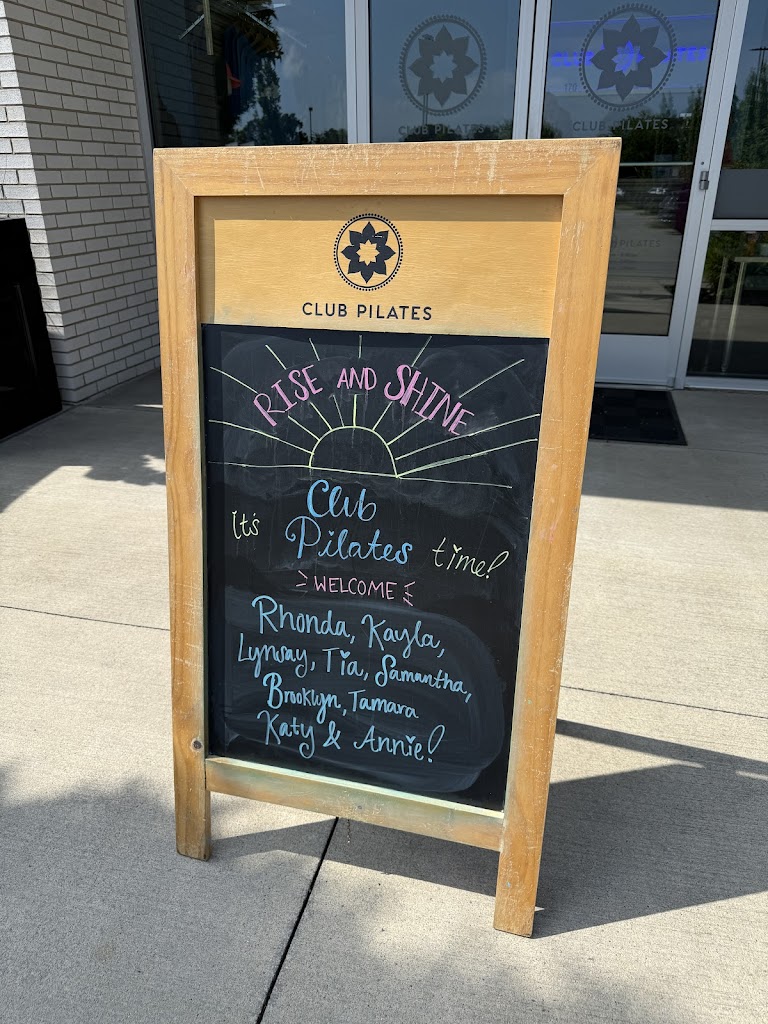 CLUB PILATES
CLUB PILATES
CLUB PILATES
CLUB PILATES
RISE AND SHINE
it's Club Pilates time!
WELCOME
Rhonda, Kayla,
Lynsay, Tia, Samantha,
Brooklyn, Tamara
Katy & Annie!